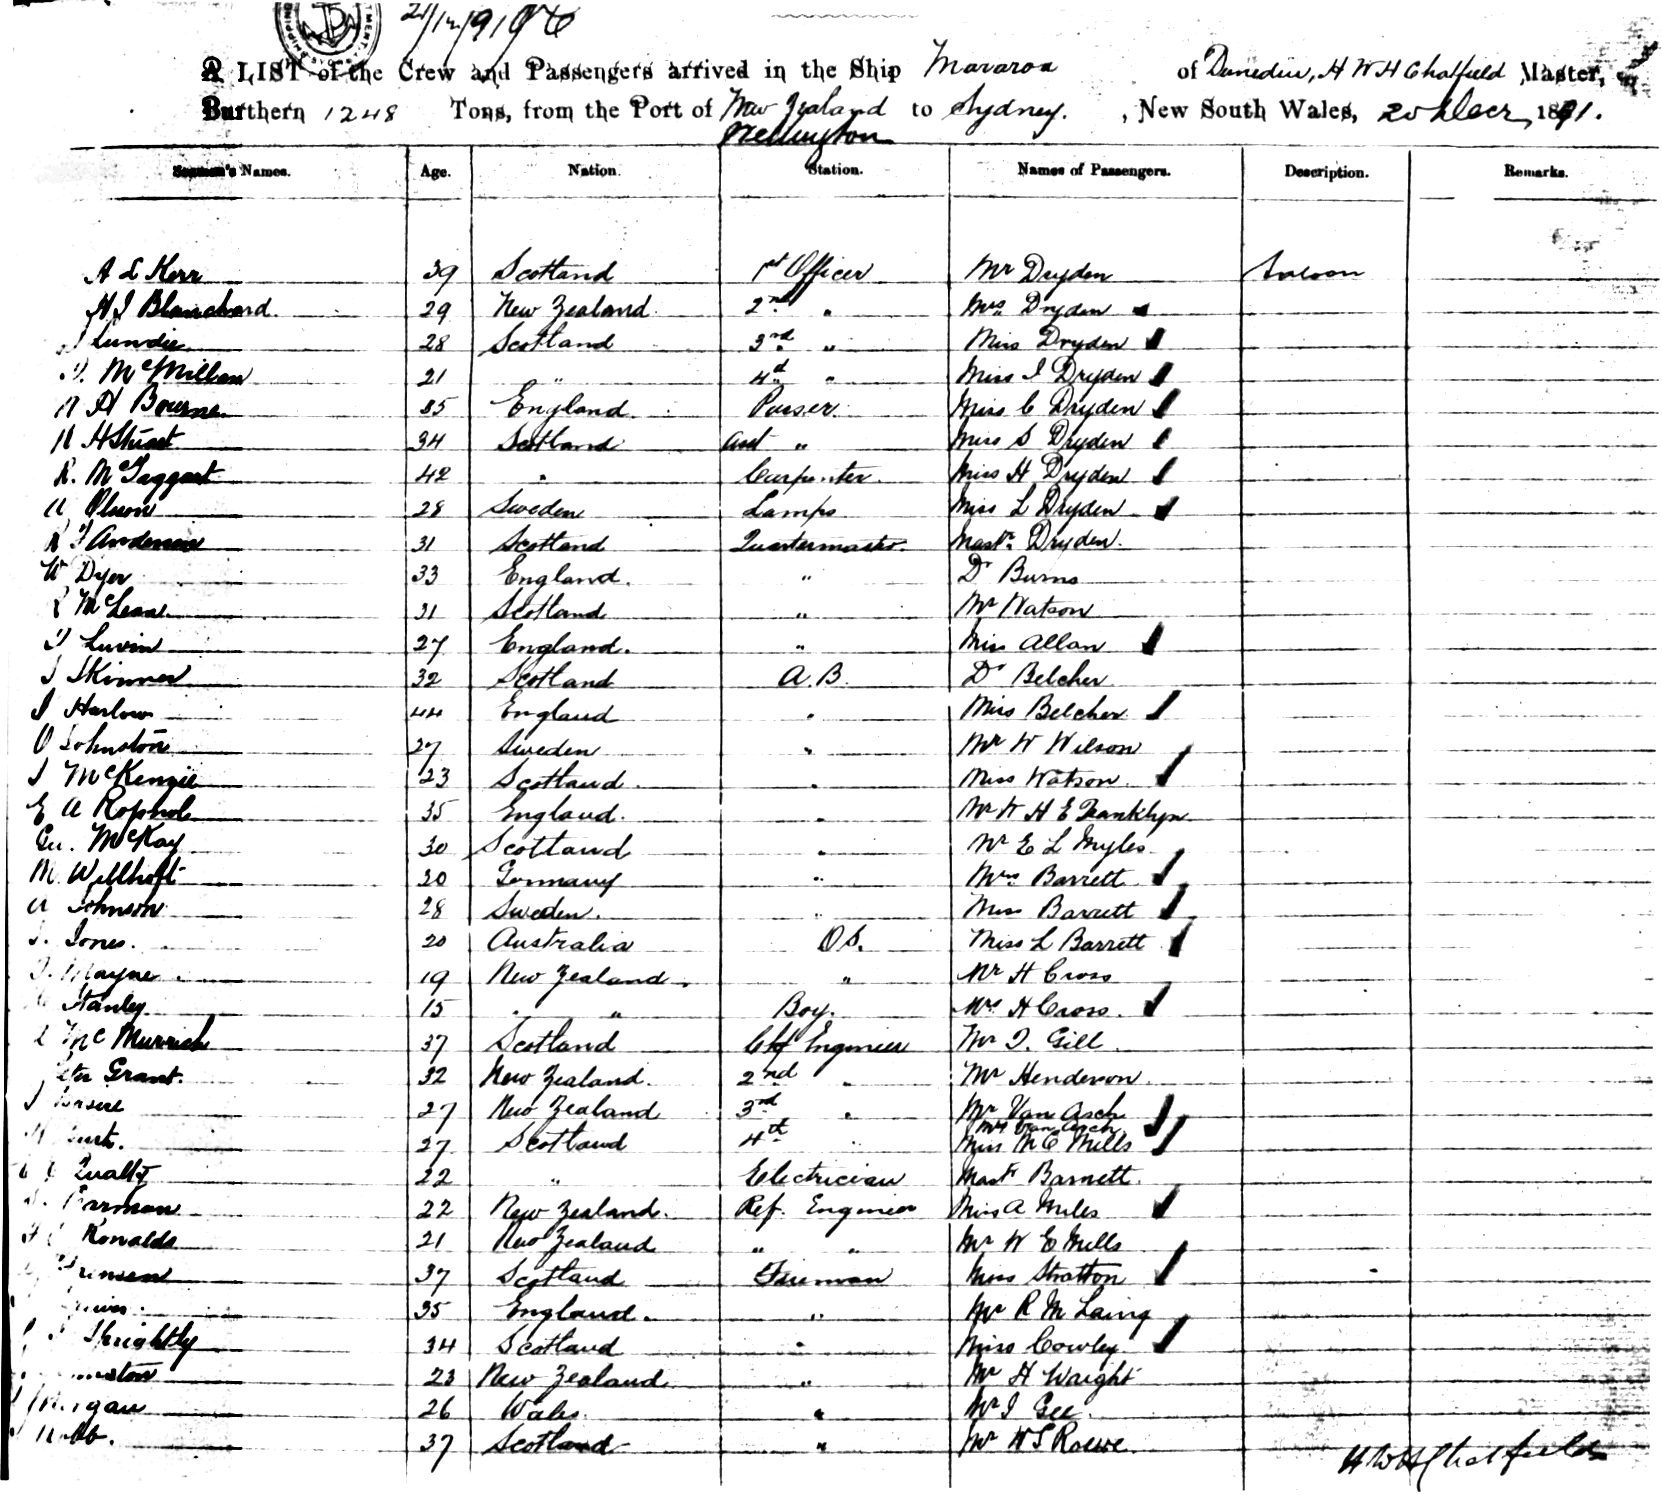 21/12/91
A LIST of the Crew and Passengers arrived in the Ship Mararoa of Dunedin, H W H Chatfield Master,
Burthern 1248 Tons, from the Port of New Zealand to Sydney. , New South Wales, 20 Decr, 1891.
Wellington
Seaman's Names. Age. Nation. Station. Names of Passengers. Description. Remarks.
A L Kerr 39 Scotland 1st Officer Mr Dryden Saloon
H J Blanchard 29 New Zealand 2nd " Mrs Dryden
Lundie 28 Scotland 3rd " Miss Dryden
McMillan 21 " 4th " Miss I Dryden
H Bourne 35 England Purser Miss C Dryden
H Stuart 34 Scotland Asst " Miss S Dryden
R. McTaggart 42 " Carpenter Miss H Dryden
A Olsson 28 Sweden Lamps Miss L Dryden
Anderson 31 Scotland Quartermaster Mastr Dryden
W Dyer 33 England. " Dr Burns
McLean 31 Scotland " Mr Watson
27 England. " Miss Allan
J Skinner 32 Scotland A.B. Dr Belcher
J Harlow 44 England " Miss Belcher
O Johnston 27 Sweden " Mr W Wilson
J McKenzie 23 Scotland " Miss Watson
E A 35 England. " Mr W H E Franklyn
Geo. McKay 30 Scotland " Mr E L Myles
M. Wellhoft 20 Germany " Mrs Barrett
A Johnson 28 Sweden. " Miss Barrett
Jones. 20 Australia O.S. Miss L Barrett
Mayne 19 New Zealand " Mr H Cross
Stanley 15 " " Boy. Mrs H Cross
McMurrich 37 Scotland Chf Engineer Mr T. Gill
Peter Grant. 32 New Zealand. 2nd " Mr Henderson
27 New Zealand 3rd " Mr Van Asch
Mrs Van Asch
27 Scotland 4th " Miss M C Mills
22 " Electrician Mastr Barnett.
22 New Zealand. Ref. Engineer Miss A Miles
Ronalds 21 New Zealand " " Mr W E Mills
37 Scotland Fireman Miss Stratton
35 England. " Mr R M Laing
34 Scotland " Miss Cowley
23 New Zealand " Mr H Waight
Morgan 26 Wales. " Mr J Gee
Robb. 37 Scotland " Mr W S Rowe
H W H Chatfield